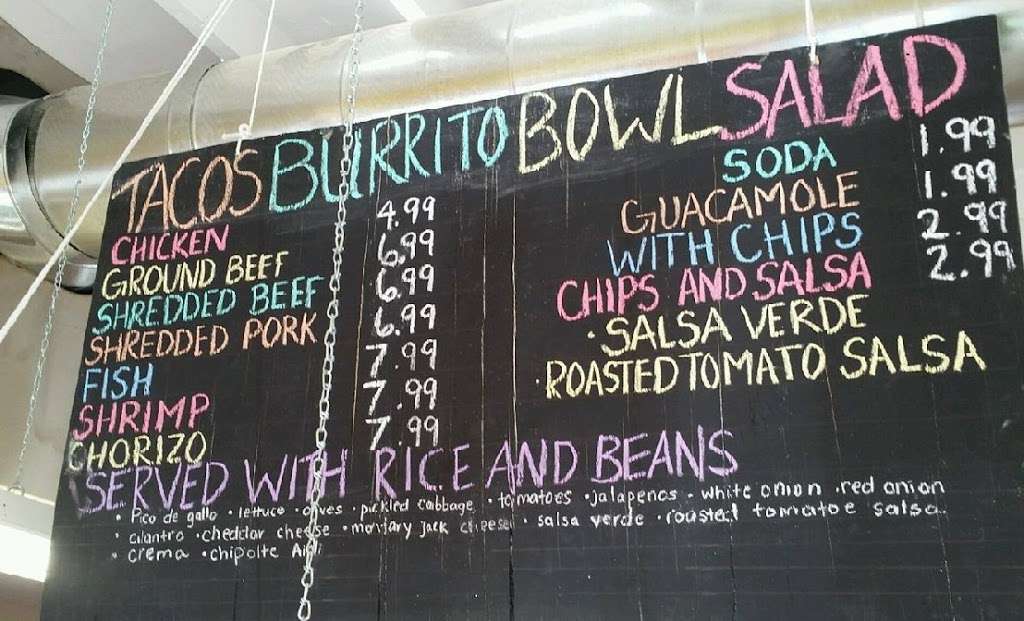 TACOS BURRITO BOWL SALAD
CHICKEN 4.99
GROUND BEEF 6.99
SHREDDED BEEF 6.99
SHREDDED PORK 6.99
FISH 7.99
SHRIMP 7.99
CHORIZO 7.99
SODA 1.99
GUACAMOLE 1.99
WITH CHIPS 2.99
CHIPS AND SALSA 2.99
· SALSA VERDE
· ROASTED TOMATO SALSA
SERVED WITH RICE AND BEANS
· Pico de gallo · lettuce · olives · pickled cabbage · tomatoes · jalapenos · white onion · red onion
· cilantro · cheddar cheese · montary jack cheese · salsa verde · roasted tomatoe salsa
· crema · chipolte Aioli